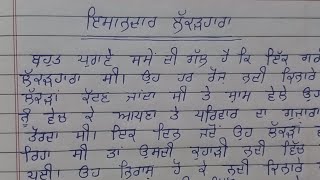 ਇਮਾਨਦਾਰ ਲੱਕੜਹਾਰਾ
ਬਹੁਤ ਪੁਰਾਣੇ ਸਮੇਂ ਦੀ ਗੱਲ ਹੈ ਕਿ ਇੱਕ
ਲੱਕੜਹਾਰਾ ਸੀ। ਉਹ ਹਰ ਰੋਜ਼ ਨਦੀ ਕਿਨਾਰੇ
ਲੱਕੜਾਂ ਵੱਢਣ ਜਾਂਦਾ ਸੀ ਤੇ ਸ਼ਾਮ ਵੇਲੇ ਉਹ
ਨੂੰ ਵੇਚ ਕੇ ਆਪਣਾ ਤੇ ਪਰਿਵਾਰ ਦਾ ਗੁਜ਼ਾਰਾ
ਤੋਰਦਾ ਸੀ। ਇਕ ਦਿਨ ਜਦੋਂ ਉਹ ਲੱਕੜਾਂ
ਰਿਹਾ ਸੀ ਤਾਂ ਉਸਦੀ ਕੁਹਾੜੀ ਨਦੀ ਵਿੱਚ
ਪਈ। ਉਹ ਨਿਰਾਸ਼ ਹੋ ਕੇ ਨਦੀ ਕਿਨਾਰੇ